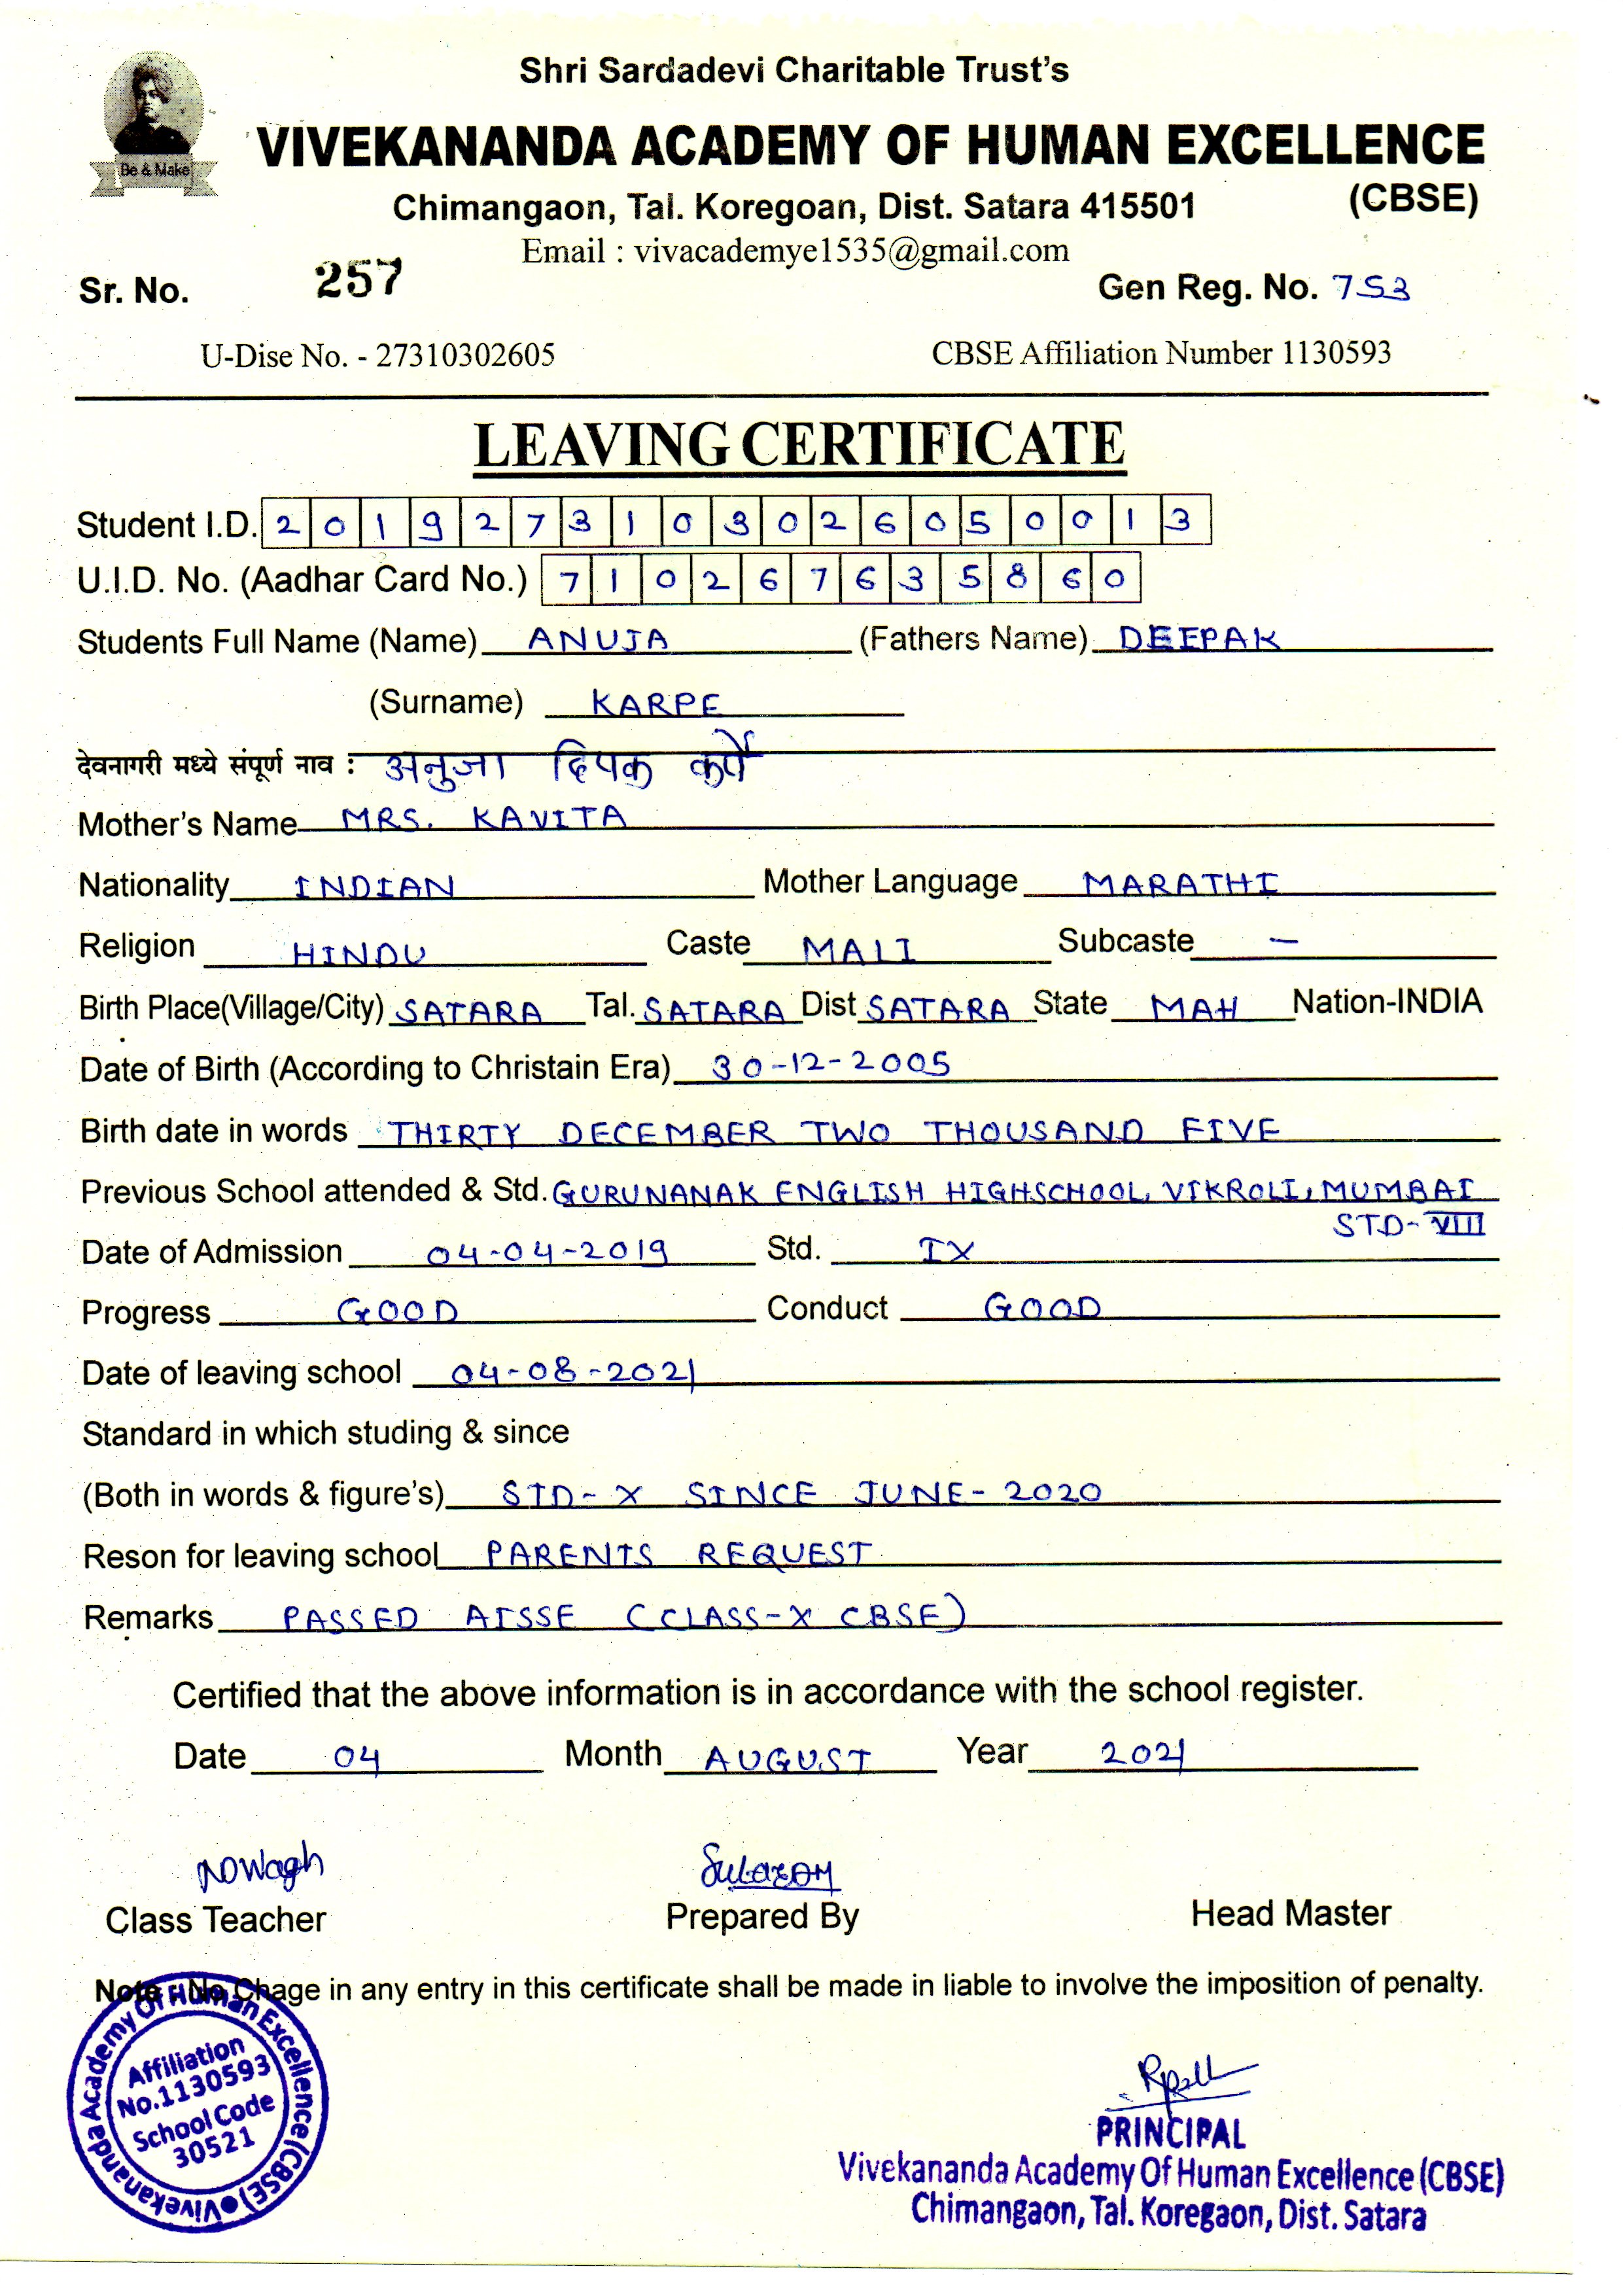 Shri Sardadevi Charitable Trust's
VIVEKANANDA ACADEMY OF HUMAN EXCELLENCE
(CBSE)
Be & Make
Chimangaon, Tal. Koregoan, Dist. Satara 415501
Email : vivacademye1535@gmail.com
Sr. No. 257 Gen Reg. No. 753
U-Dise No. - 27310302605 CBSE Affiliation Number 1130593
LEAVING CERTIFICATE
Student I.D. 2019273103026050013
U.I.D. No. (Aadhar Card No.) 710267635860
Students Full Name (Name) ANUJA (Fathers Name) DEEPAK
(Surname) KARPE
देवनागरी मध्ये संपूर्ण नाव : अनुजा दिपक कर्पे
Mother's Name MRS. KAVITA
Nationality INDIAN Mother Language MARATHI
Religion HINDU Caste MALI Subcaste –
Birth Place(Village/City) SATARA Tal. SATARA Dist SATARA State MAH Nation-INDIA
Date of Birth (According to Christain Era) 30-12-2005
Birth date in words THIRTY DECEMBER TWO THOUSAND FIVE
Previous School attended & Std. GURUNANAK ENGLISH HIGHSCHOOL, VIKROLI, MUMBAI
STD-VIII
Date of Admission 04-04-2019 Std. IX
Progress GOOD Conduct GOOD
Date of leaving school 04-08-2021
Standard in which studing & since
(Both in words & figure's) STD-X SINCE JUNE-2020
Reson for leaving school PARENTS REQUEST
Remarks PASSED AISSE (CLASS-X CBSE)
Certified that the above information is in accordance with the school register.
Date 04 Month AUGUST Year 2021
Class Teacher Prepared By Head Master
Note : No Chage in any entry in this certificate shall be made in liable to involve the imposition of penalty.
Vivekananda Academy Of Human Excellence (CBSE)
Affiliation
No.1130593
School Code
30521
PRINCIPAL
Vivekananda Academy Of Human Excellence (CBSE)
Chimangaon, Tal. Koregaon, Dist. Satara